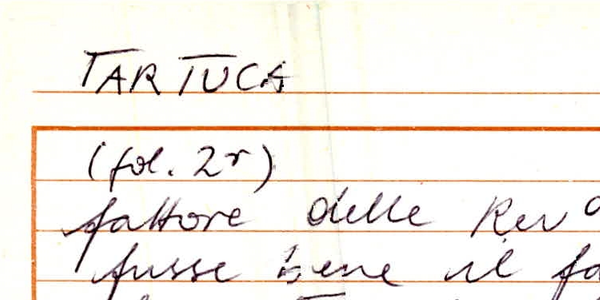 TARTUCA
(fol. 2r)
fattore delle Rev
fusse bene il fa